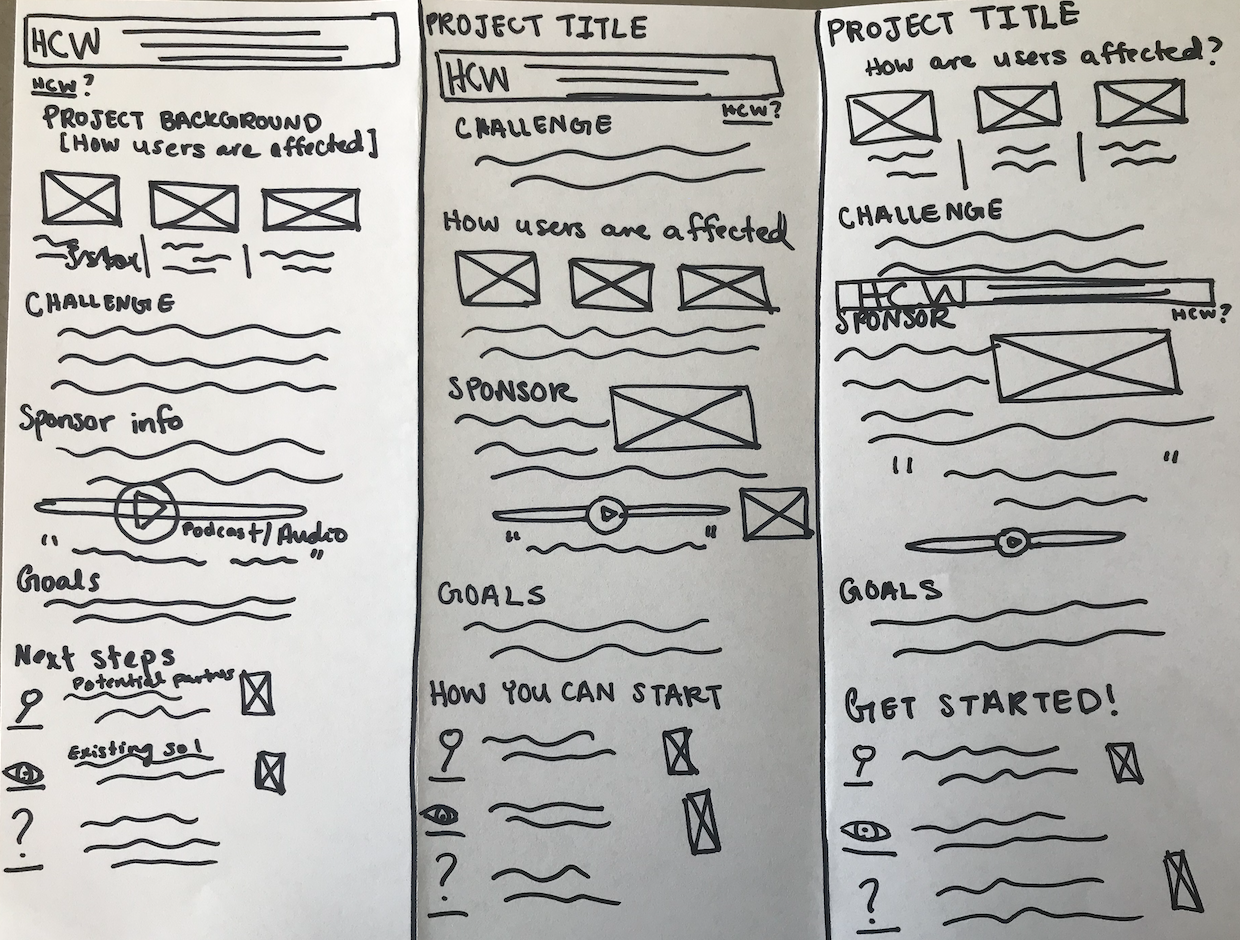 HCW
HCW?
PROJECT BACKGROUND
[How users are affected]
CHALLENGE
Sponsor info
Podcast/Audio
" "
Goals
Next steps
Potential
?
Existing sol
?
PROJECT TITLE
HCW
HCW?
CHALLENGE
How users are affected
SPONSOR
" "
GOALS
HOW YOU CAN START
?
PROJECT TITLE
How are users affected?
CHALLENGE
HCW
HCW?
SPONSOR
" "
GOALS
GET STARTED!
?